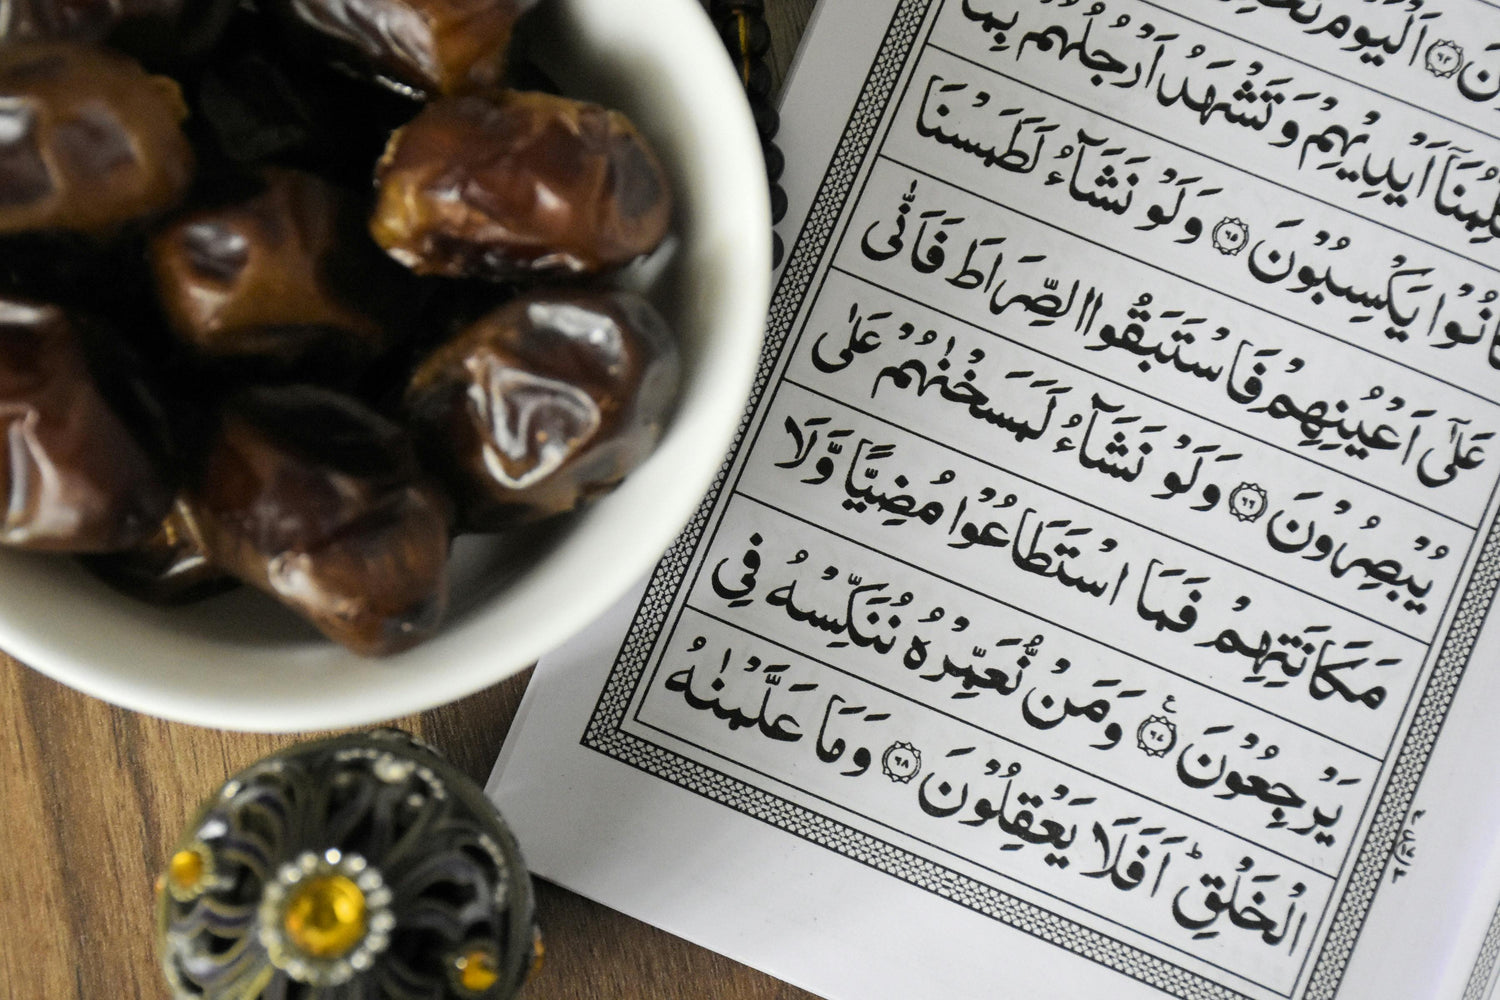 اَلْيَوْمَ
اَيْدِيْهِمْ وَتَشْهَدُ اَرْجُلُهُمْ بِمَا
يَكْسِبُوْنَ ﴿٦٥﴾ وَلَوْ نَشَآءُ لَطَمَسْنَا
عَلٰٓى اَعْيُنِهِمْ فَاسْتَبَقُوا الصِّرَاطَ فَاَنّٰى
يُبْصِرُوْنَ ﴿٦٦﴾ وَلَوْ نَشَآءُ لَمَسَخْنٰهُمْ عَلٰى
مَكَانَتِهِمْ فَمَا اسْتَطَاعُوْا مُضِيًّا وَّلَا
يَرْجِعُوْنَ ﴿٦٧﴾ ع وَمَنْ نُّعَمِّرْهُ نُنَكِّسْهُ فِى
الْخَلْقِ ؕ اَفَلَا يَعْقِلُوْنَ ﴿٦٨﴾ وَمَا عَلَّمْنٰهُ